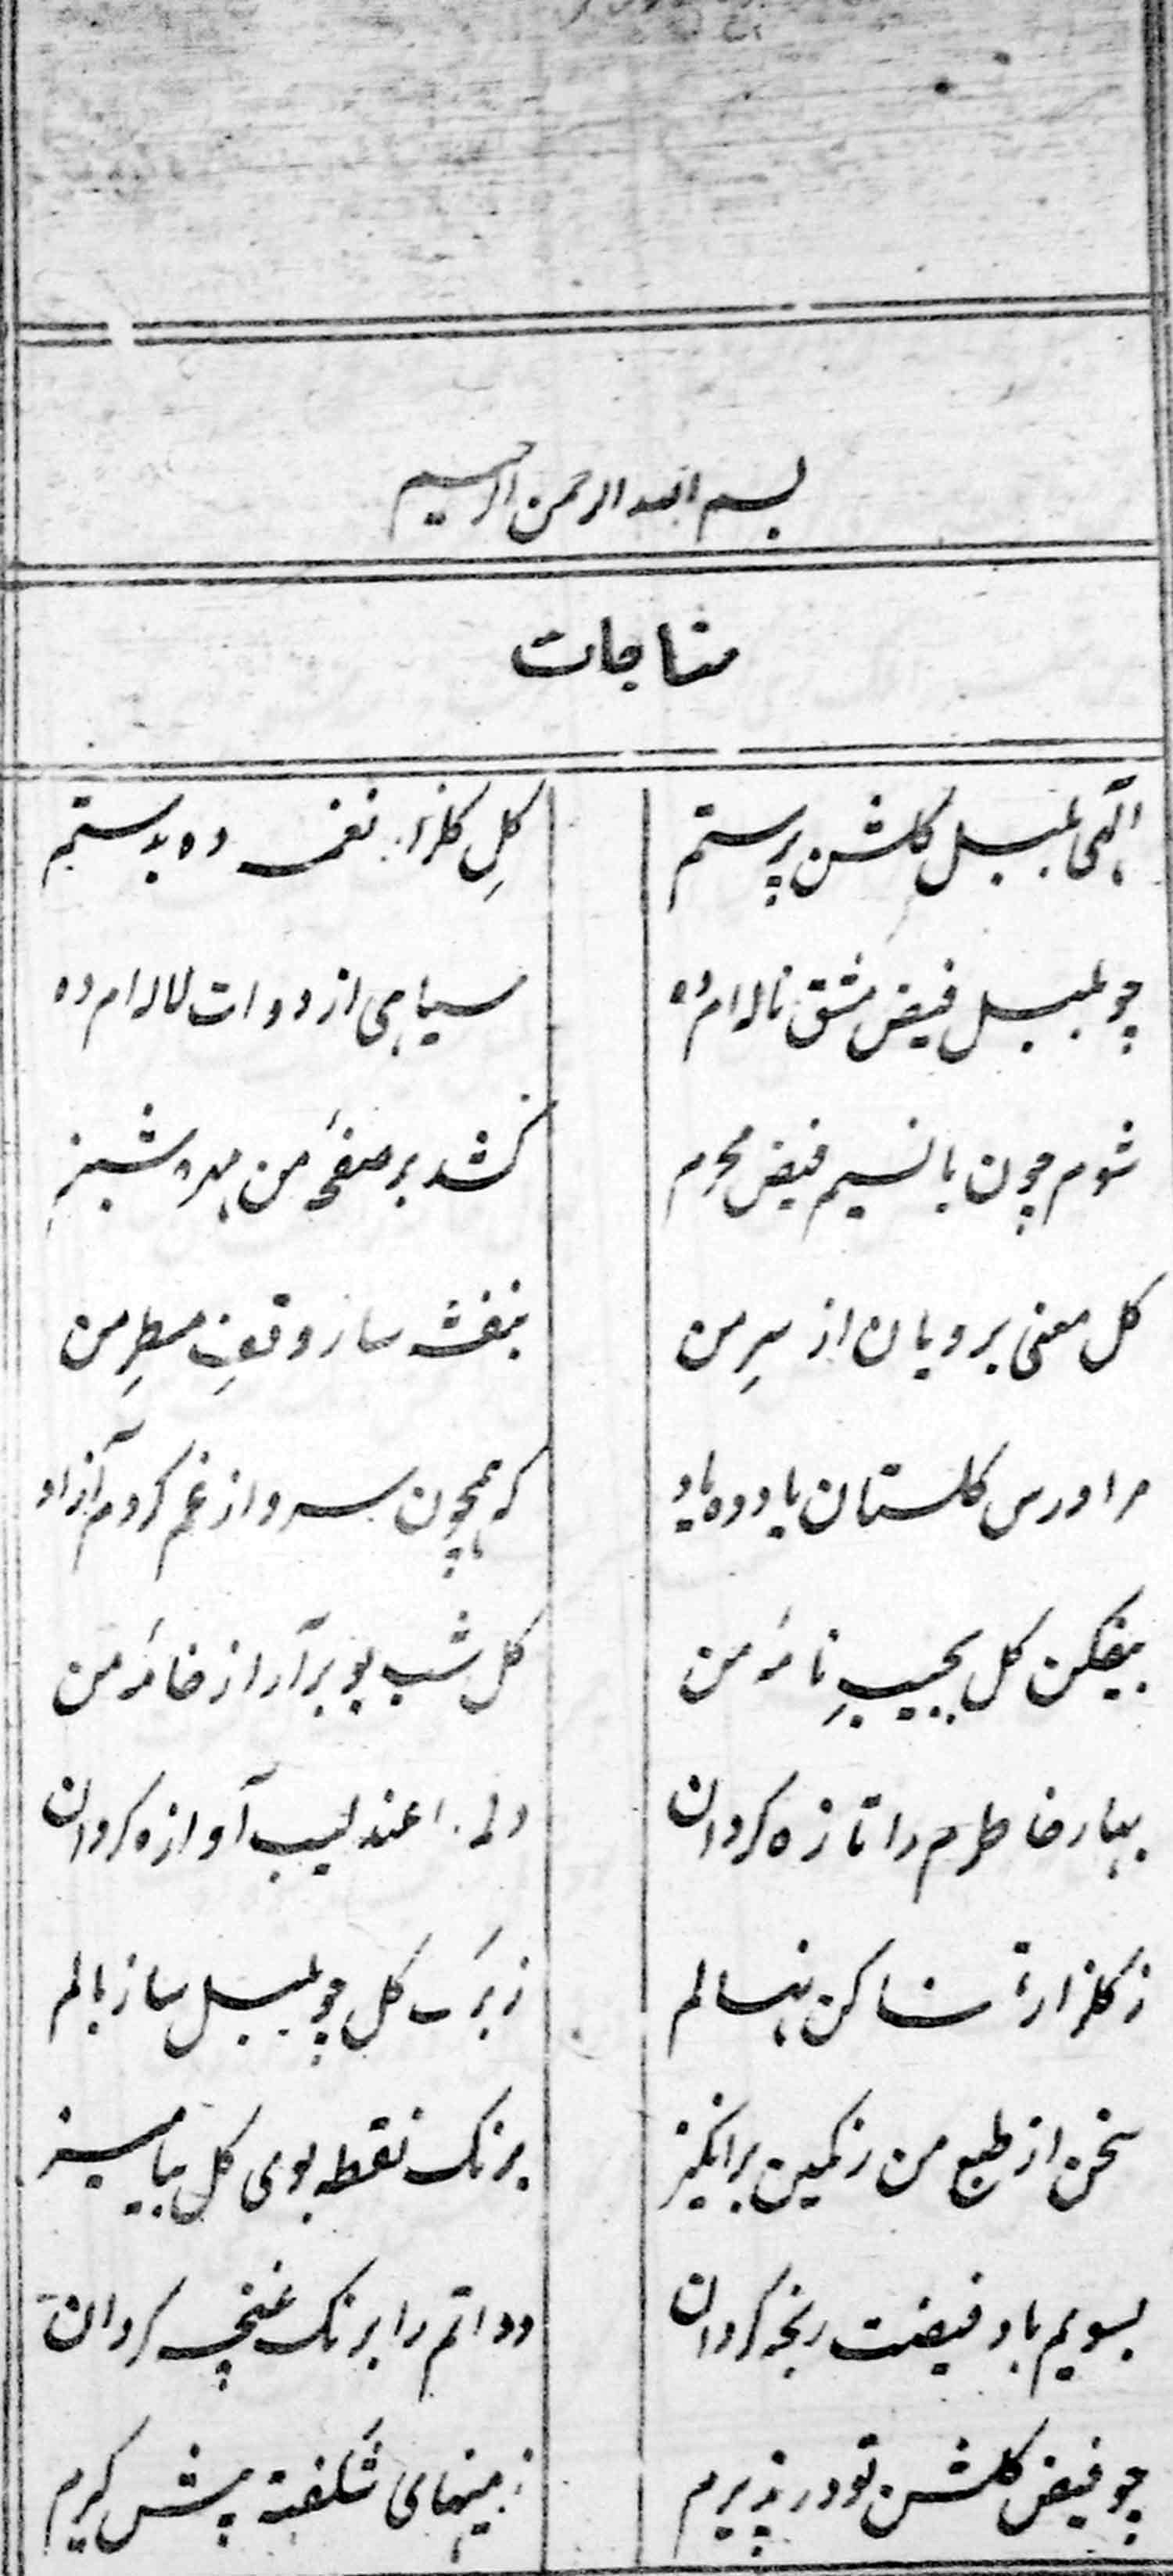 بسم الله الرحمن الرحیم
مناجات
الٰهی بلبل کلشن پرستم کلِ کلزار نغمه ده بدستم
چو بلبل فیض مشق ناله ام ده سیاهی از دوات لاله ام ده
شوم چون با نسیم فیض محرم کشد بر صفحۀ من مهره شبنم
کل معنی برویان از سرِ من بنفشه ساز وقفِ مسطرِ من
مرا درس کلستان یاد ده یاد که همچون سرو از غم کردم آزاد
بیفکن کل بجیبِ نامۀ من کل شب بو برآر از خامۀ من
بهار خاطرم را تازه کردان دلم را عندلیب آوازه کردان
ز کلزار کن نهالم ز برک کل چو بلبل ساز بالم
سخن از طبع من رنکین برانکیز برنک نقطه بوی کل بیامیز
بسویم باد فیضت رنجه کردان دواتم را برنک غنچه کردان
چو فیض کلشن تو در پذیرم زمینهای شکفته پیش کیرم